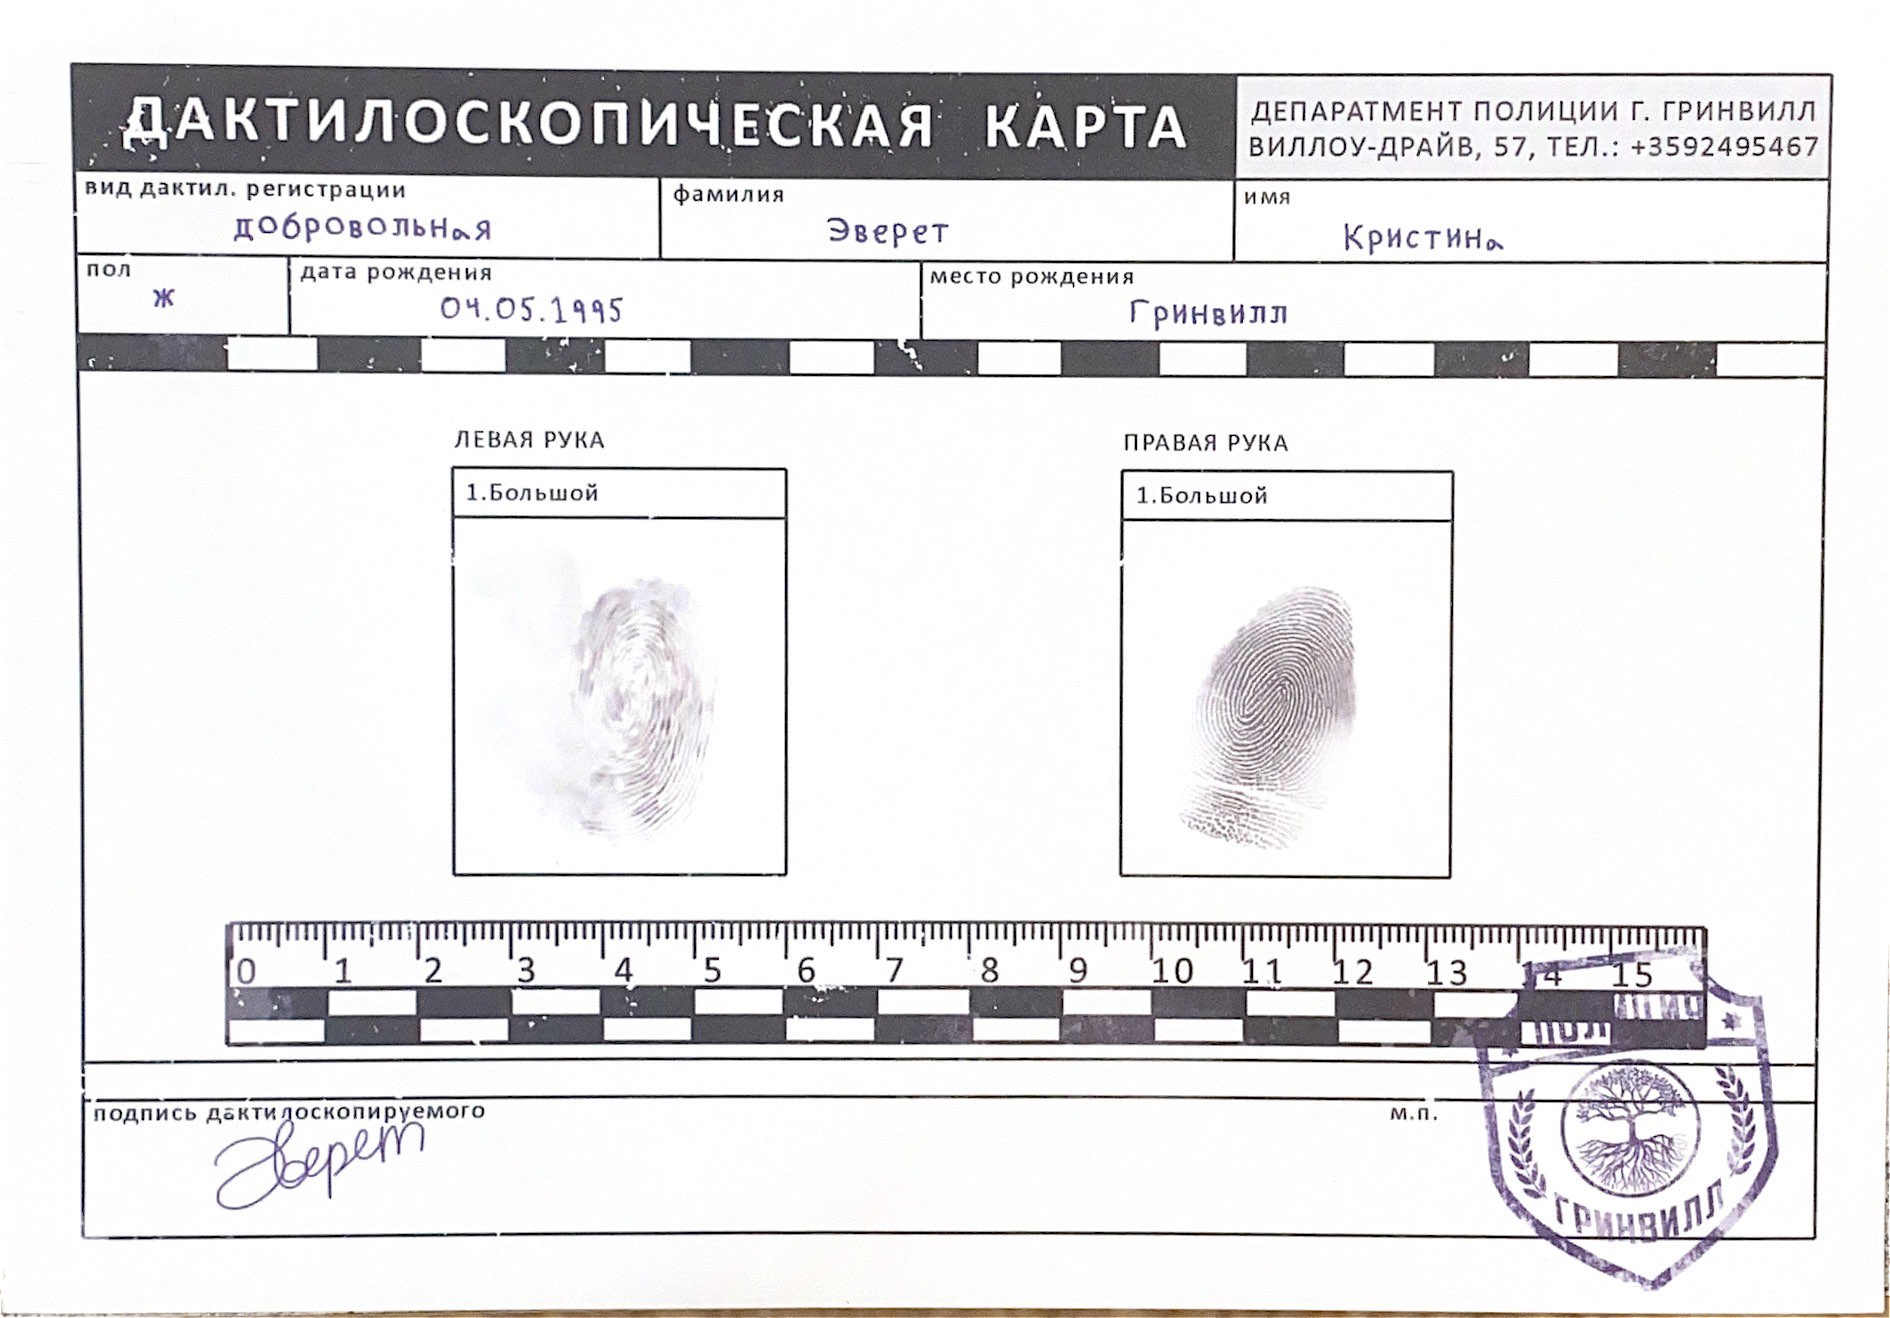 ДАКТИЛОСКОПИЧЕСКАЯ КАРТА
ДЕПАРАТМЕНТ ПОЛИЦИИ Г. ГРИНВИЛЛ
ВИЛЛОУ-ДРАЙВ, 57, ТЕЛ.: +3592495467
вид дактил. регистрации
добровольная
фамилия
Эверет
имя
Кристина
пол
ж
дата рождения
04.05.1995
место рождения
Гринвилл
ЛЕВАЯ РУКА
1.Большой
ПРАВАЯ РУКА
1.Большой
0 1 2 3 4 5 6 7 8 9 10 11 12 13 14 15
подпись дактилоскопируемого
Эверет
м.п.
ГРИНВИЛЛ